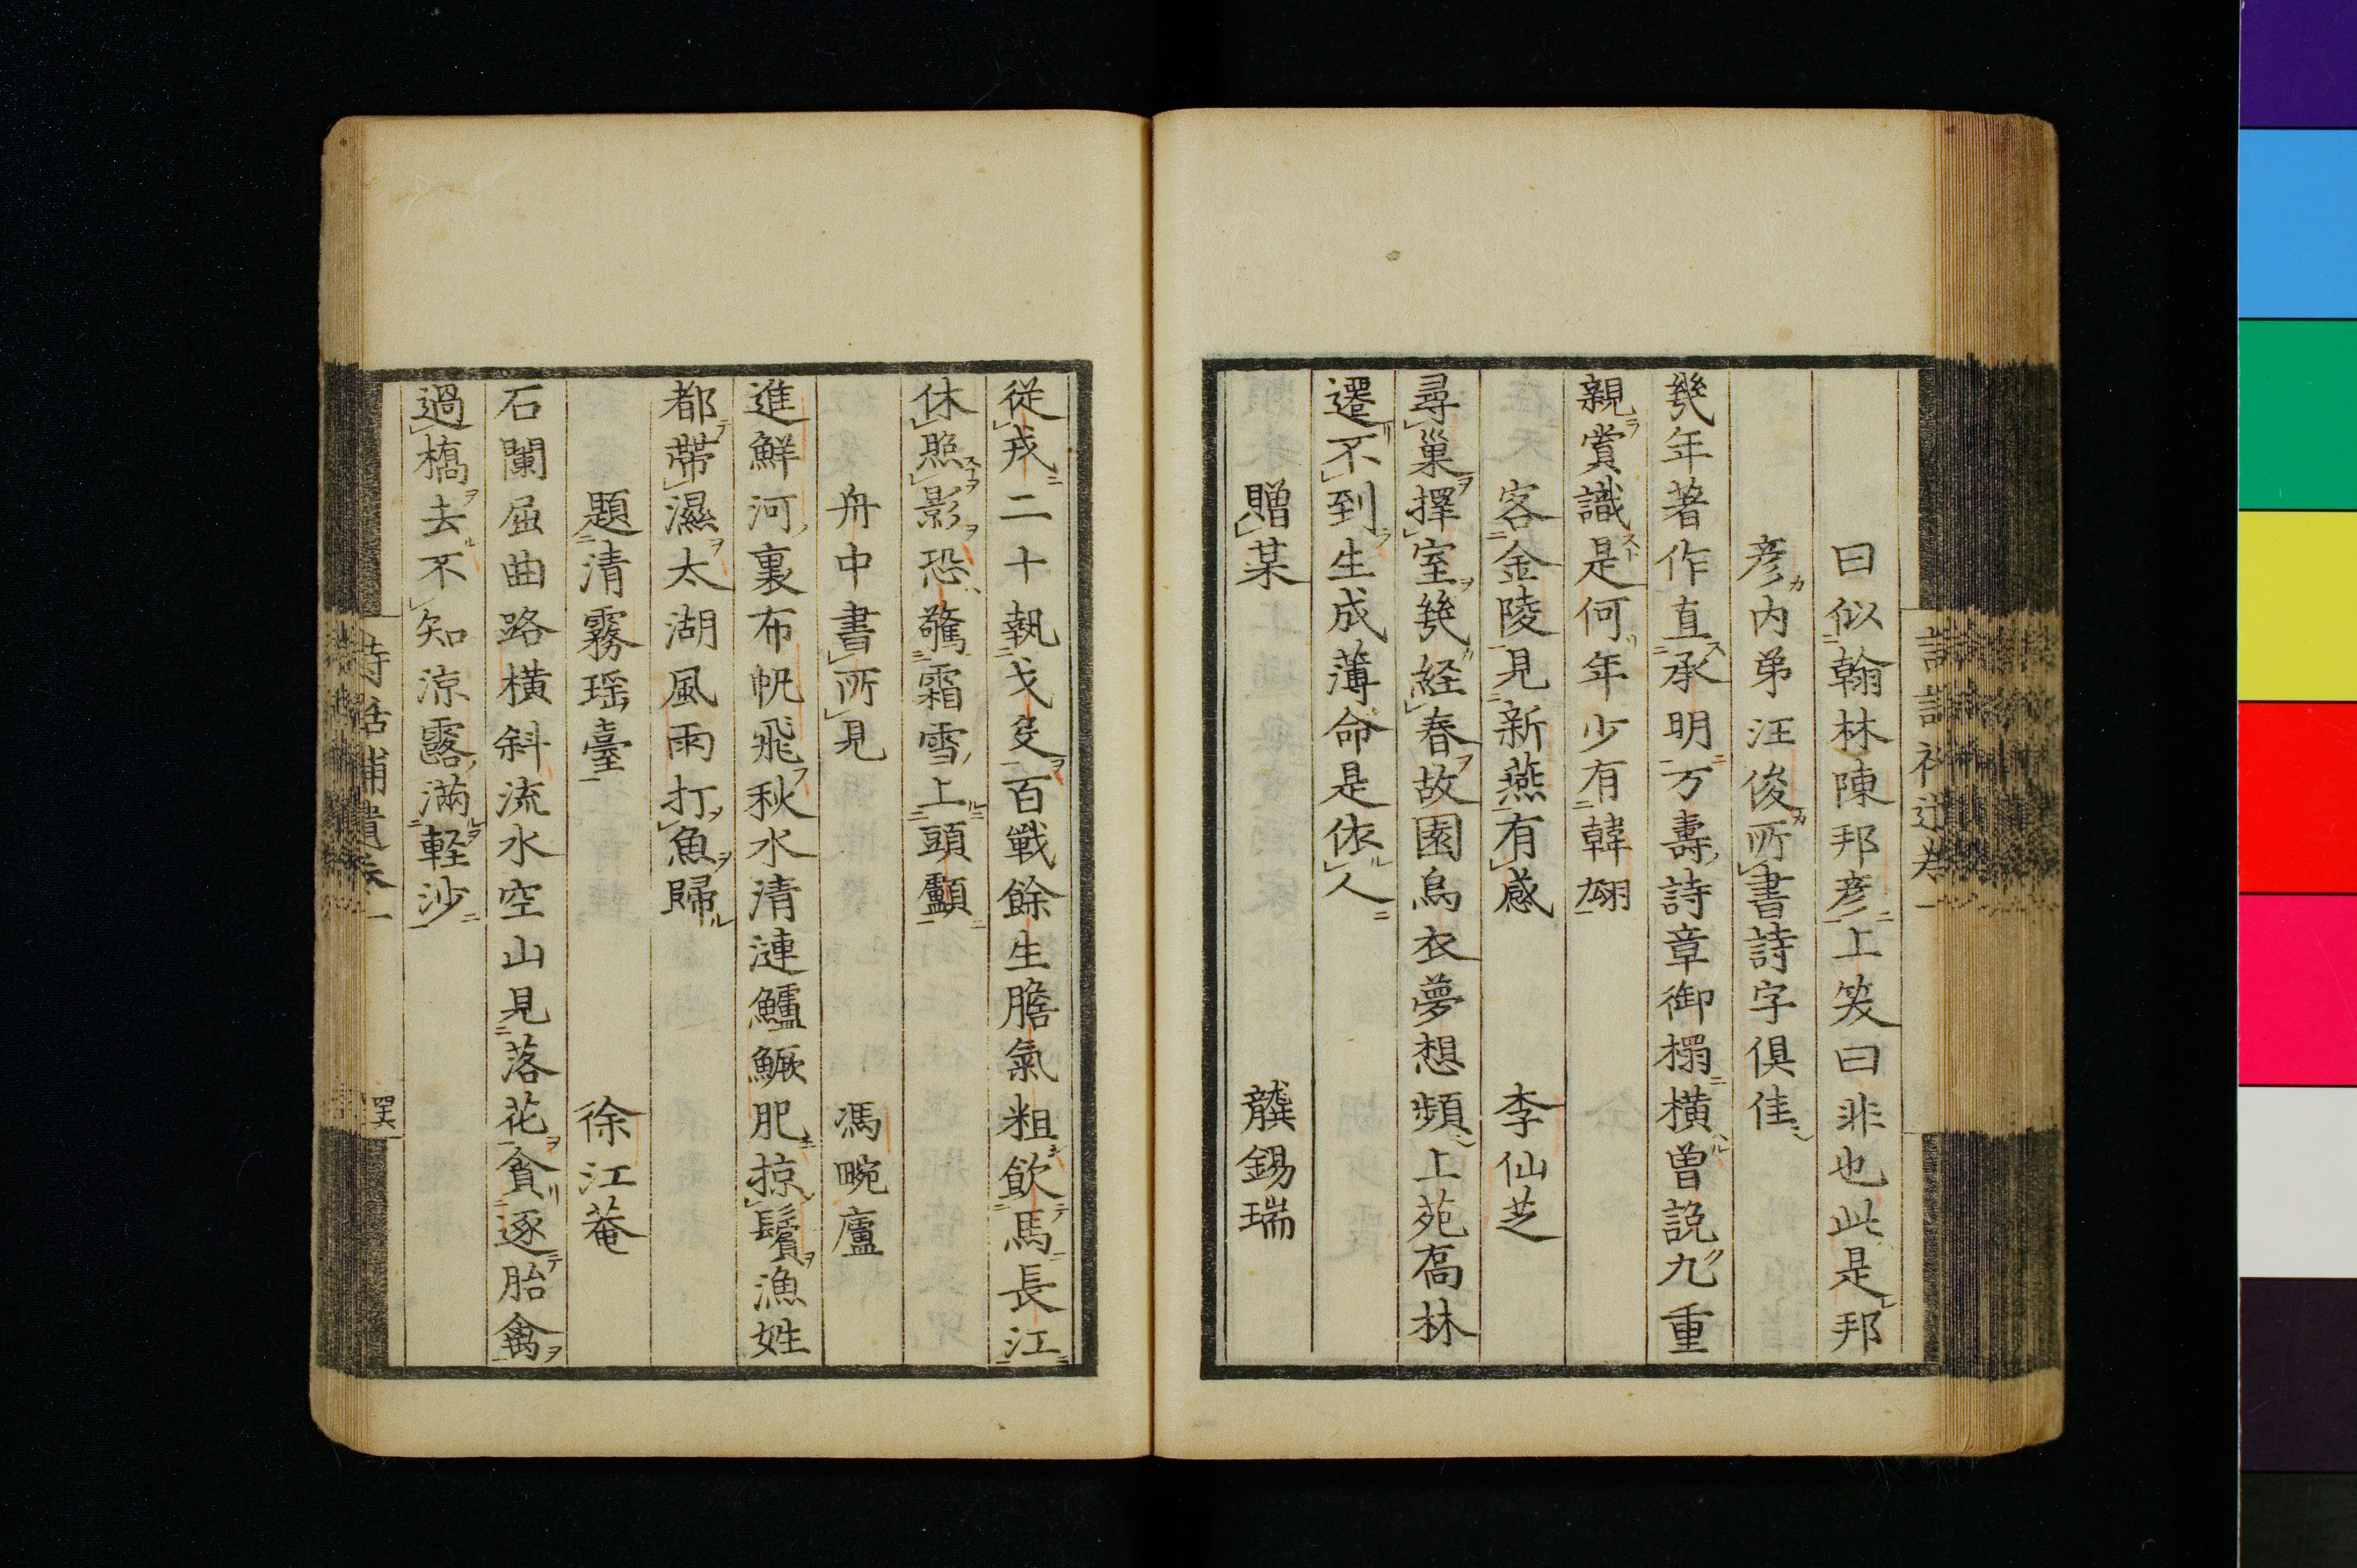 曰似翰林陳邦彦上笑曰非也此是邦
彦内弟汪俊所書詩字俱佳
幾年著作直承明万壽詩章御榻横曽説九重
親賞識是何年少有韓翃
客金陵見新燕有感 李仙芝
尋巢擇室幾経春故園烏衣夢想頻上苑髙林
遷不到生成薄命是依人
贈某 龔錫瑞
從戎二十執戈殳百戰餘生膽氣粗飲馬長江
休照影恐驚霜雪上頭顱
舟中書所見 馮畹廬
進鮮河裏布帆飛秋水清漣鱸鱖肥掠鬢漁姓
都帶濕太湖風雨打魚歸
題清霧瑶臺 徐江菴
石闌屈曲路横斜流水空山見落花貪逐胎禽
過橋去不知涼露滿軽沙
詩話補遺巻一